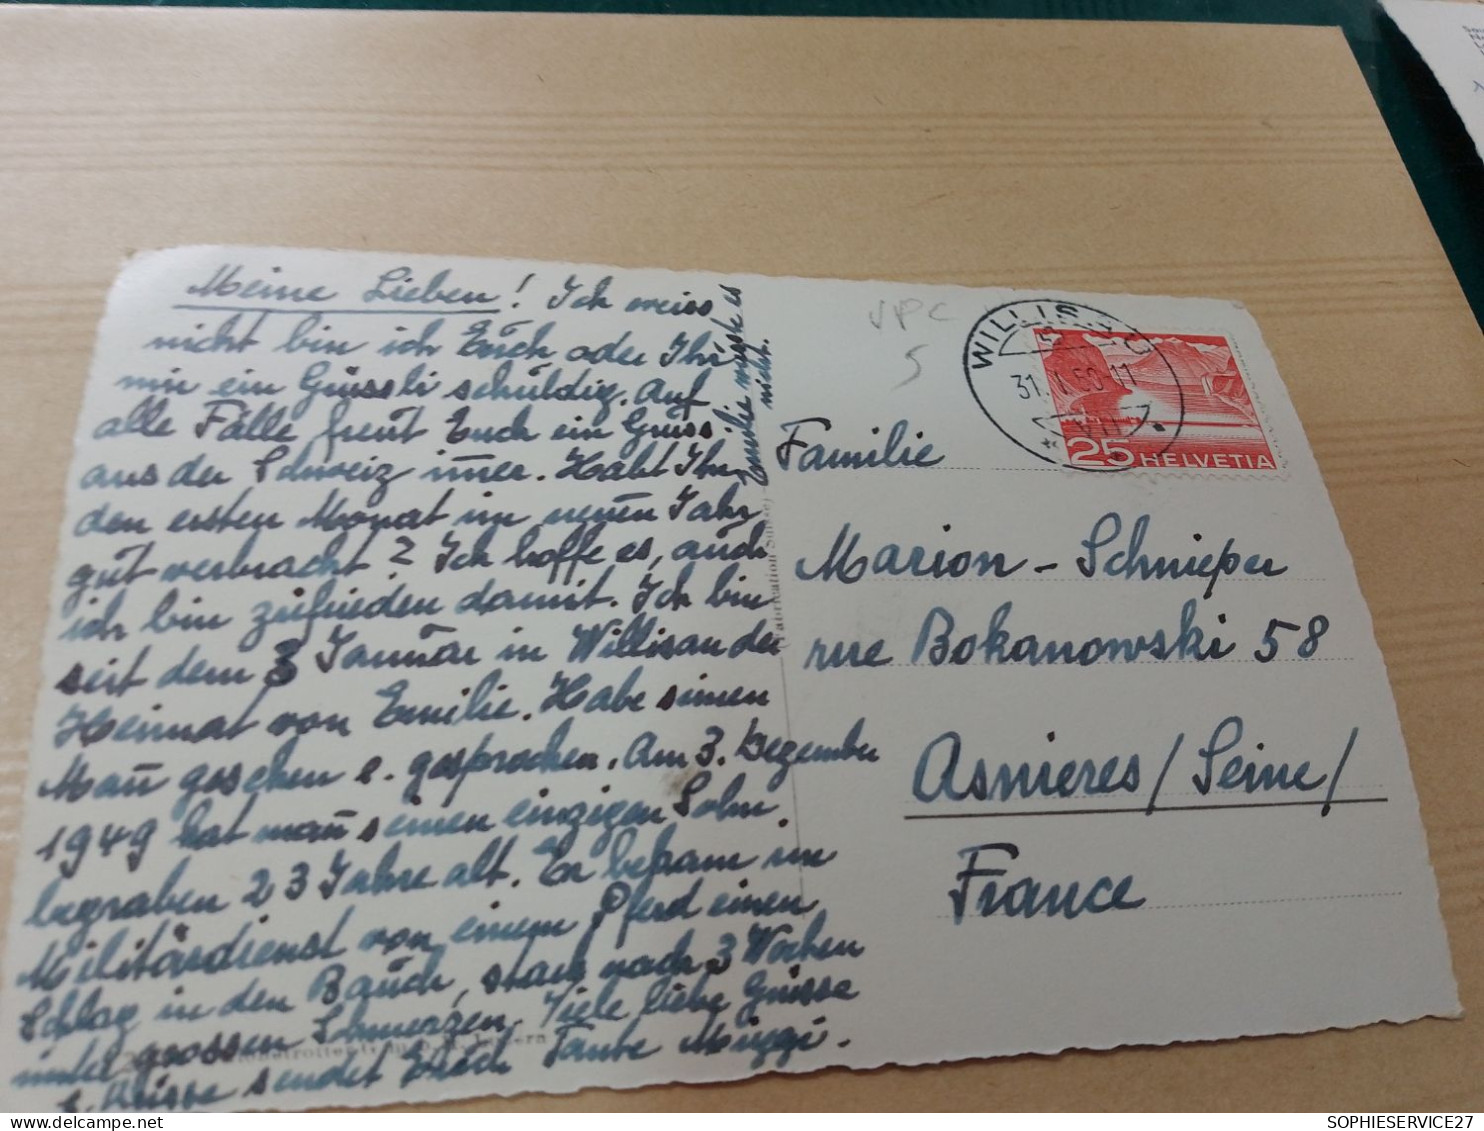 Meine Lieben! Ich weiss
nicht bin ich Euch oder Ihr
mir ein Grüssli schuldig. Auf
alle Fälle freut Euch ein Gruss
aus der Schweiz immer. Habt Ihr
den ersten Monat im neuen Jahr
gut verbracht? Ich hoffe es, auch
ich bin zufrieden damit. Ich bin
seit dem 3 Januar in Willisau der
Heimat von Emilie. Habe seinen
Mann gesehen e. gesprochen. Am 3. Dezember
1949 hat man seinen einzigen Sohn
begraben 23 Jahre alt. Er bekam im
Militärdienst von einem Pferd einen
Schlag in den Bauch, starb nach 3 Wochen
unter grossen Schmerzen. Viele liebe Grüsse
e. Küsse sendet Euch Tante Muggi.
Emilie wusste es
nicht.
VPC
5
WILLISAU
31. 50 11
25 HELVETIA
Familie
Marion - Schnieper
rue Bokanowski 58
Asnieres /Seine/
France
(Fabrication Suisse)
SOPHIESERVICE27